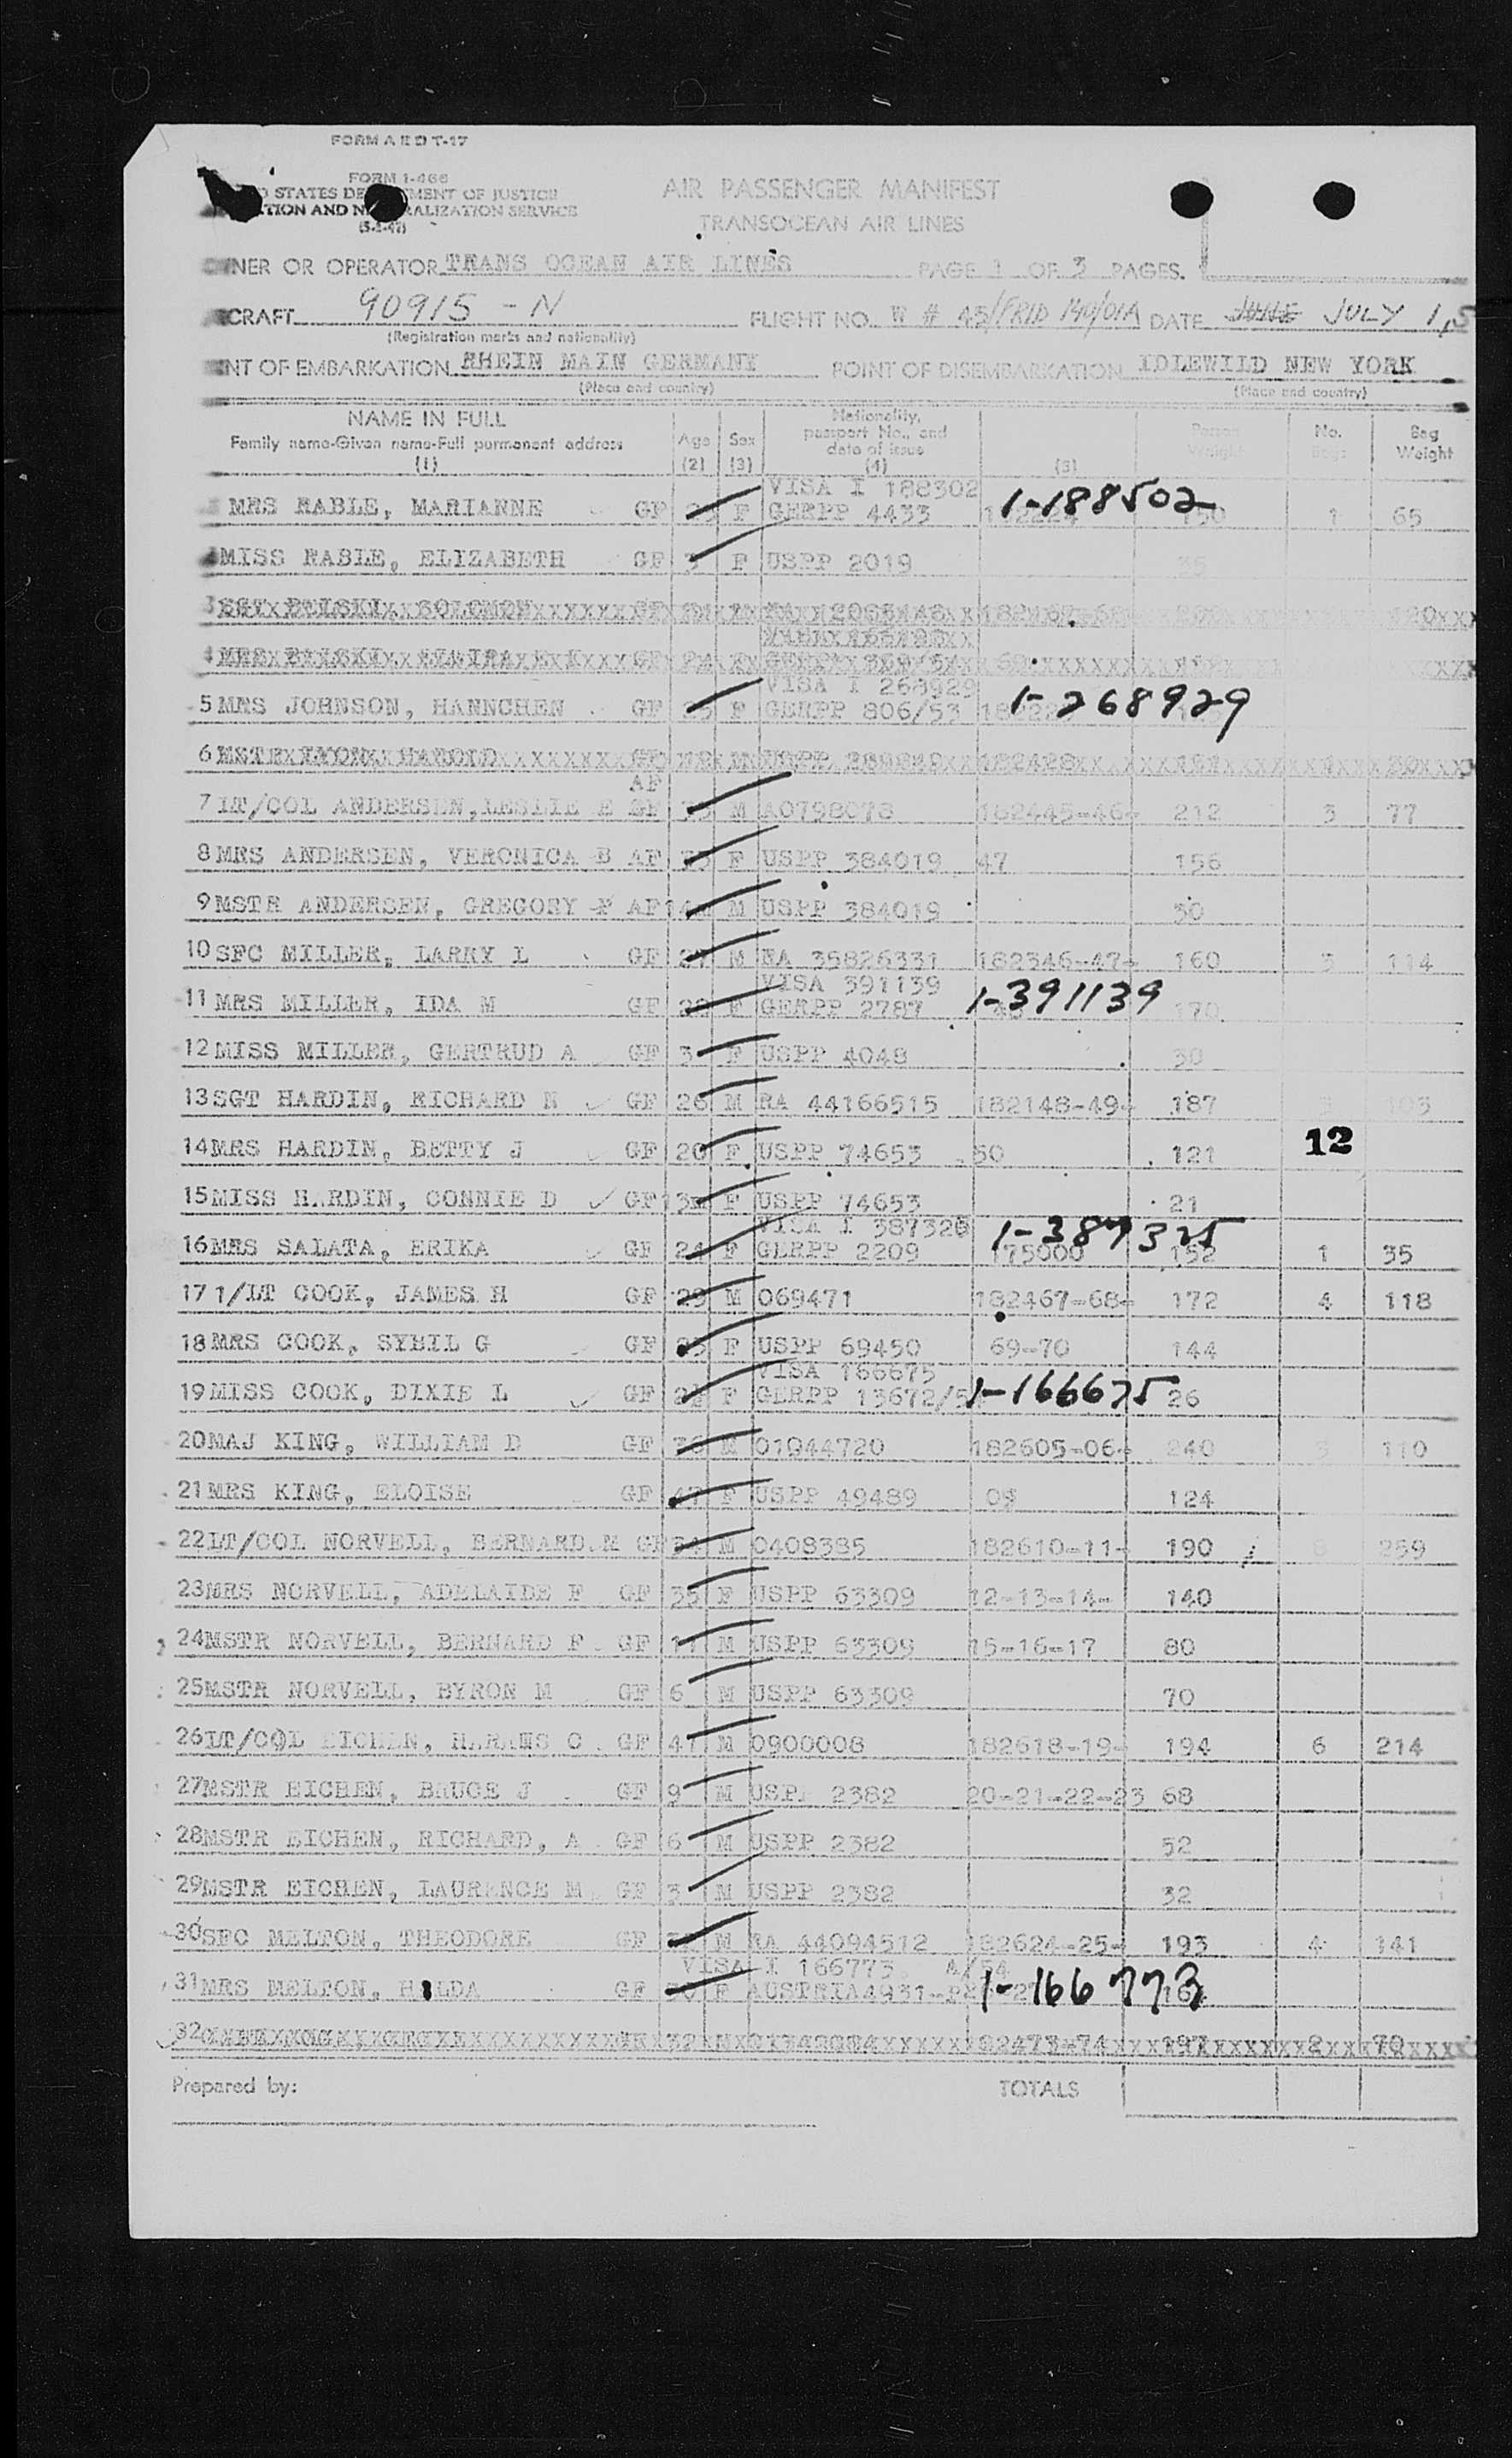 FORM A R D T-17
FORM I-466
STATES DE MENT OF JUSTICE
TION AND N RALIZATION SERVICE
AIR PASSENGER MANIFEST
TRANSOCEAN AIR LINES
NER OR OPERATOR TRANS OCEAN AIR LINES PAGE 1 OF 3 PAGES.
CRAFT 90915 - N FLIGHT NO. W # 45/FRID 140/01A DATE JUNE JULY 1,5
(Registration marks and nationality)
NT OF EMBARKATION RHEIN MAIN GERMANY POINT OF DISEMBARKATION IDLEWILD NEW YORK
(Place and country) (Place and country)
NAME IN FULL
Family name-Given name-Full permanent address
(1)
Age (2) Sex (3)
Nationality, passport No., and date of issue (4)
(5) Person Weight No. Bags Bag Weight
VISA I 188302
MRS RABLE, MARIANNE GF F GERPP 4433 1-188502 1 65
MISS RABLE, ELIZABETH GF 3 F USPP 2019 35
3
4
VISA I 268929
5 MRS JOHNSON, HANNCHEN GF 25 F GERPP 806/53 1-268929
6 MSTR HAROLD 182428
AF
7 LT/COL ANDERSEN, LESLIE E GF M AO798078 182445-46- 212 3 77
8 MRS ANDERSEN, VERONICA B AF F USPP 384019 47 156
9 MSTR ANDERSEN, GREGORY P AF M USPP 384019 30
10 SFC MILLER, LARRY L GF 27 M RA 35826331 182346-47- 160 3 114
VISA 391139
11 MRS MILLER, IDA M GF F GERPP 2787 1-391139 170
12 MISS MILLER, GERTRUD A GF 3 F USPP 4048 30
13 SGT HARDIN, RICHARD N GF 26 M RA 44166515 182148-49- 187 3 103
14 MRS HARDIN, BETTY J GF 20 F USPP 74653 50 121 12
15 MISS HARDIN, CONNIE D GF 13M F USPP 74653 21
VISA I 387326 1-387325
16 MRS SALATA, ERIKA GF 24 F GERPP 2209 175000 152 1 35
17 1/LT COOK, JAMES H GF 29 M 069471 182467-68- 172 4 118
18 MRS COOK, SYBIL G GF F USPP 69450 69-70 144
VISA 166675
19 MISS COOK, DIXIE L GF F GERPP 13672/5 1-166675 26
20 MAJ KING, WILLIAM D GF 36 M 01944720 182605-06- 240 3 110
21 MRS KING, ELOISE GF 47 F USPP 49489 124
22 LT/COL NORVELL, BERNARD M GF M 0408385 182610-11- 190 8 259
23 MRS NORVELL, ADELAIDE F GF 35 F USPP 63309 12-13-14- 140
24 MSTR NORVELL, BERNARD F GF 11 M USPP 63309 15-16-17 80
25 MSTR NORVELL, BYRON M GF 6 M USPP 63309 70
26 LT/COL EICHEN, C GF 41 M 0900008 182618-19- 194 6 214
27 MSTR EICHEN, BRUCE J GF 9 M USP 2382 20-21-22-23 68
28 MSTR EICHEN, RICHARD, A GF 6 M USPP 2382 52
29 MSTR EICHEN, LAURENCE M GF 3 M USPP 2382 32
30 SFC MELTON, THEODORE GF M RA 44094512 182624-25- 193 4 141
VISA I 166773 4/54
31 MRS MELTON, HILDA GF F AUSTRIA4931- 1-166773
32 GF 32 82473-74 197 2 70
Prepared by: TOTALS